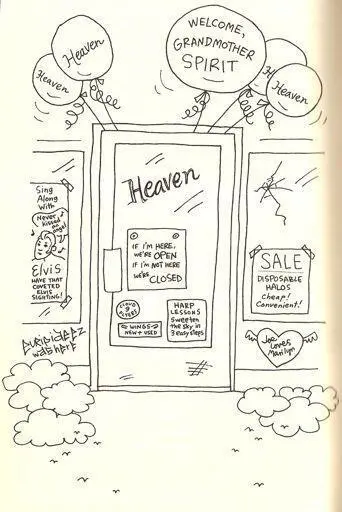 Heaven
Heaven
WELCOME,
GRANDMOTHER
SPIRIT
H
Heaven
Heaven
Sing
Along
With
Never
kissed
an
angel
Elvis
HAVE THAT
COVETED
ELVIS
SIGHTING!
IF I'M HERE,
WE'RE OPEN
IF I'M NOT HERE
WE'RE CLOSED
CLOUD
9
FLYERS
WINGS
NEW & USED
HARP
LESSONS
Sweeten
the sky in
3 easy steps
SALE
DISPOSABLE
HALOS
Cheap!
Convenient!
Joe
Loves
Marilyn
Euripideez
wuz here